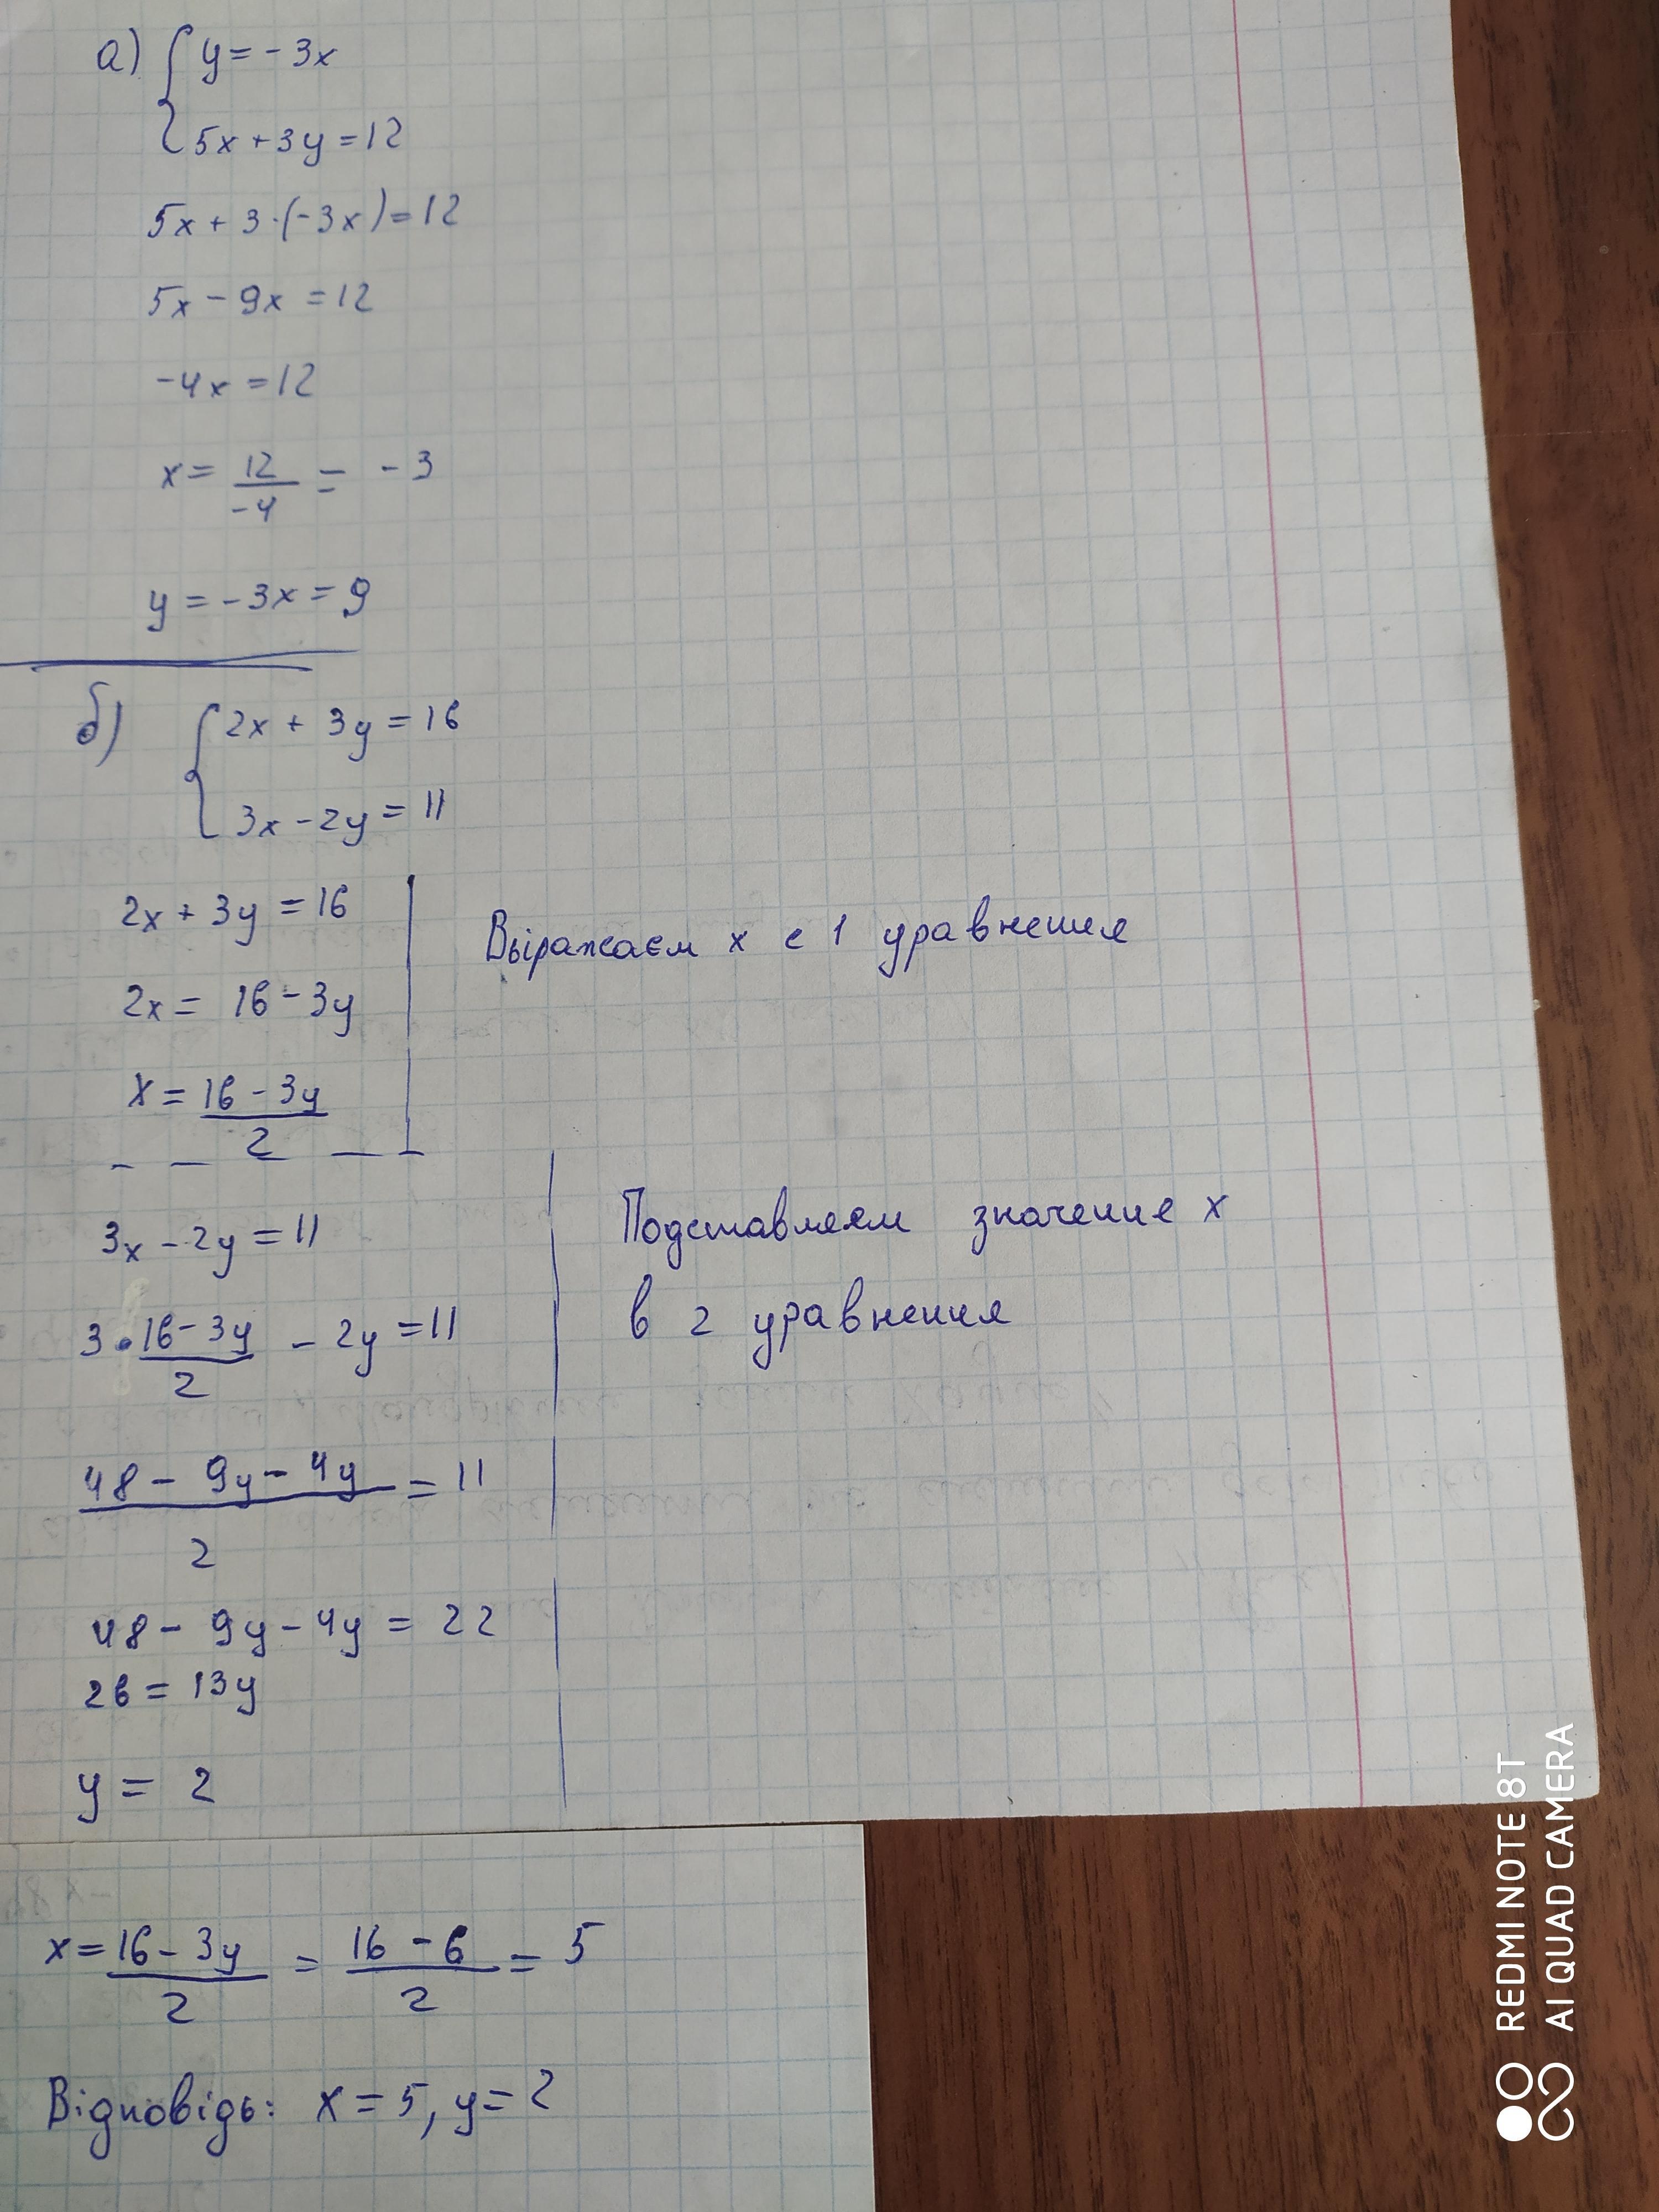 а) { y = -3x
5x + 3y = 12
5x + 3·(-3x) = 12
5x - 9x = 12
-4x = 12
x = 12/-4 = -3
y = -3x = 9
б) { 2x + 3y = 16
3x - 2y = 11
2x + 3y = 16
Выражаем x с 1 уравнения
2x = 16 - 3y
x = (16 - 3y)/2
3x - 2y = 11
Подставляем значение x
в 2 уравнения
3·(16 - 3y)/2 - 2y = 11
(48 - 9y - 4y)/2 = 11
48 - 9y - 4y = 22
26 = 13y
y = 2
x = (16 - 3y)/2 = (16 - 6)/2 = 5
Відповідь: x = 5, y = 2
REDMI NOTE 8T
AI QUAD CAMERA